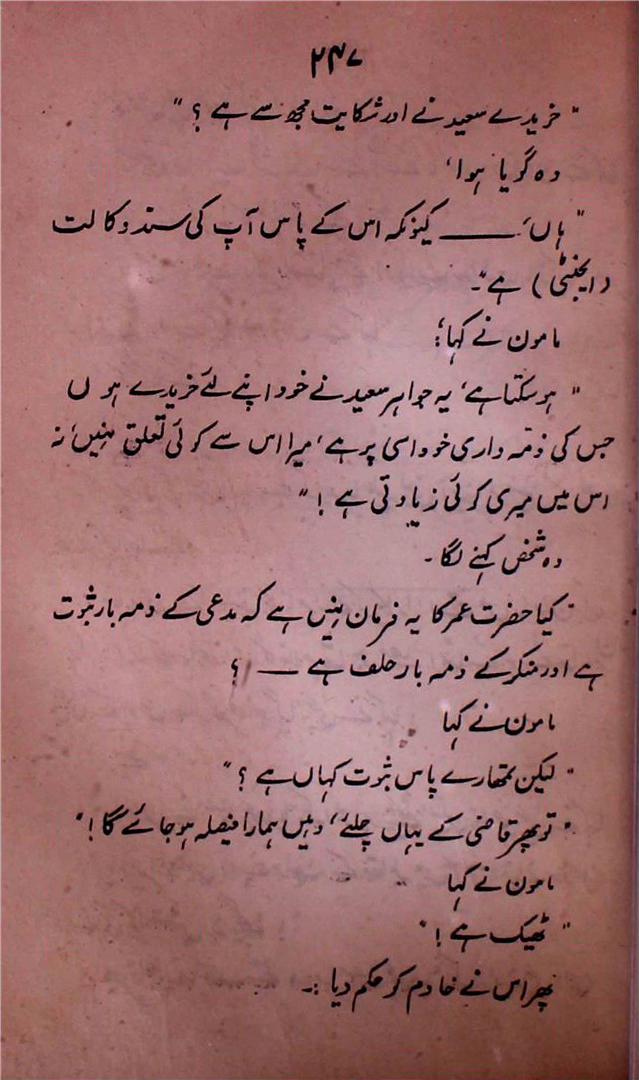 ۲۴۷
" خریدے سعید نے اور شکایت مجھ سے ہے ؟ "
وہ گویا ہوا،
" ہاں، ــــــ کیونکہ اس کے پاس آپ کی سند وکالت
(ایجنٹی) ہے "۔
مامون نے کہا؛
" ہو سکتا ہے، یہ جواہر سعید نے خود اپنے لئے خریدے ہوں
جس کی ذمہ داری خود اسی پر ہے، میرا اس سے کوئی تعلق نہیں، نہ
اس میں میری کوئی زیادتی ہے ! "
وہ شخص کہنے لگا۔
" کیا حضرت عمر کا یہ فرمان نہیں ہے کہ مدعی کے ذمہ بار ثبوت
ہے اور منکر کے ذمہ بار حلف ہے ــــ ؟
مامون نے کہا
" لیکن تمھارے پاس ثبوت کہاں ہے ؟ "
" تو پھر قاضی کے یہاں چلئے، وہیں ہمارا فیصلہ ہو جائے گا ! "
مامون نے کہا
" ٹھیک ہے ! "
پھر اس نے خادم کو حکم دیا :۔